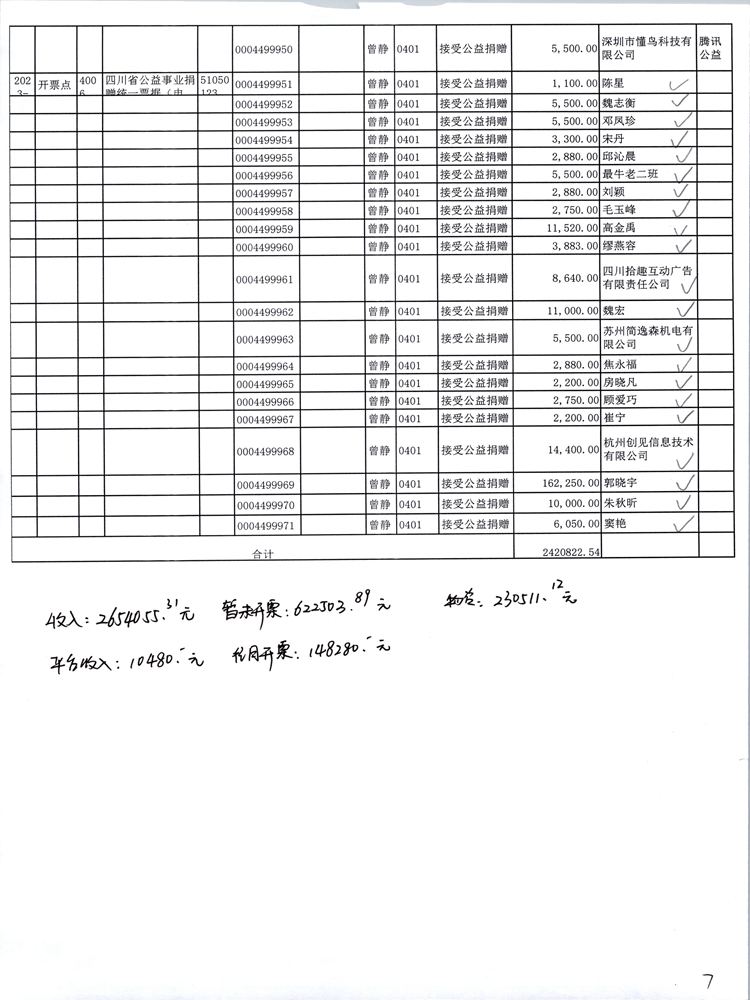 0004499950 曾静 0401 接受公益捐赠 5,500.00 深圳市懂鸟科技有限公司 腾讯公益
202 3- 开票点 400 6 四川省公益事业捐赠统一票据（电 51050 123 0004499951 曾静 0401 接受公益捐赠 1,100.00 陈星
0004499952 曾静 0401 接受公益捐赠 5,500.00 魏志衡
0004499953 曾静 0401 接受公益捐赠 5,500.00 邓凤珍
0004499954 曾静 0401 接受公益捐赠 3,300.00 宋丹
0004499955 曾静 0401 接受公益捐赠 2,880.00 邱沁晨
0004499956 曾静 0401 接受公益捐赠 5,500.00 最牛老二班
0004499957 曾静 0401 接受公益捐赠 2,880.00 刘颖
0004499958 曾静 0401 接受公益捐赠 2,750.00 毛玉峰
0004499959 曾静 0401 接受公益捐赠 11,520.00 高金禹
0004499960 曾静 0401 接受公益捐赠 3,883.00 缪燕容
0004499961 曾静 0401 接受公益捐赠 8,640.00 四川拾趣互动广告有限责任公司
0004499962 曾静 0401 接受公益捐赠 11,000.00 魏宏
0004499963 曾静 0401 接受公益捐赠 5,500.00 苏州简逸森机电有限公司
0004499964 曾静 0401 接受公益捐赠 2,880.00 焦永福
0004499965 曾静 0401 接受公益捐赠 2,200.00 房晓凡
0004499966 曾静 0401 接受公益捐赠 2,750.00 顾爱巧
0004499967 曾静 0401 接受公益捐赠 2,200.00 崔宁
0004499968 曾静 0401 接受公益捐赠 14,400.00 杭州创见信息技术有限公司
0004499969 曾静 0401 接受公益捐赠 162,250.00 郭晓宇
0004499970 曾静 0401 接受公益捐赠 10,000.00 朱秋昕
0004499971 曾静 0401 接受公益捐赠 6,050.00 窦艳
合计 2420822.54
收入：2654055.31元 暂未开票：622503.89元 物资：230511.12元
平台收入：10480.-元 开票：148280.-元
7